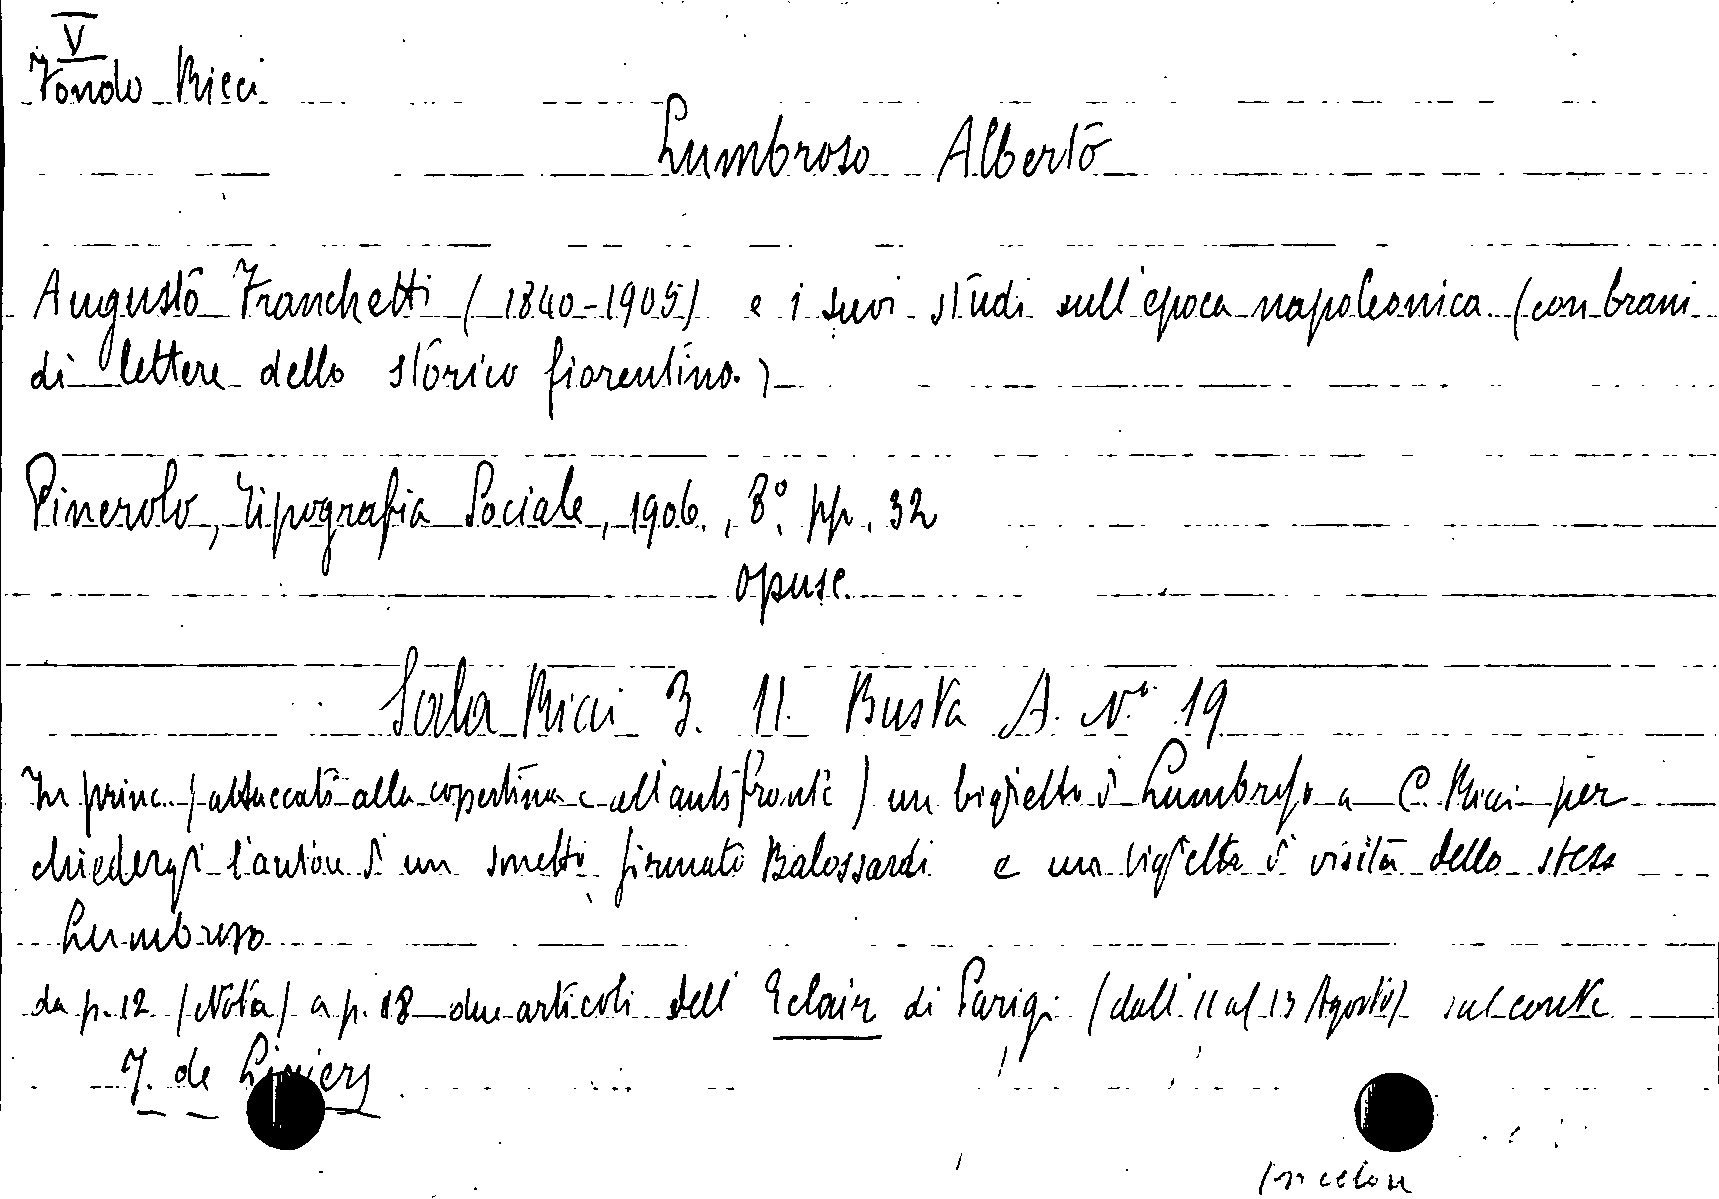 V
Fondo Ricci
Lumbroso Alberto
Augusto Franchetti (1840-1905) e i suoi studi sull'epoca napoleonica (con brani
di lettere dello storico fiorentino.)
Pinerolo, Tipografia Sociale, 1906., 8º. pp. 32
opusc.
Sala Ricci 3. 11. Busta A. Nº 19
In princ. (attaccato alla copertina e all'antifronte) un biglietto di Lumbroso a C. Ricci per
chiedergli l'autore di un sonetto firmato Balossardi e un biglietto di visita dello stesso
Lumbroso
da p. 12 (Nota) a p. 18 due articoli dell' Eclair di Parigi (dall' 11 al 13 Agosto) sul conte
J. de Liniers